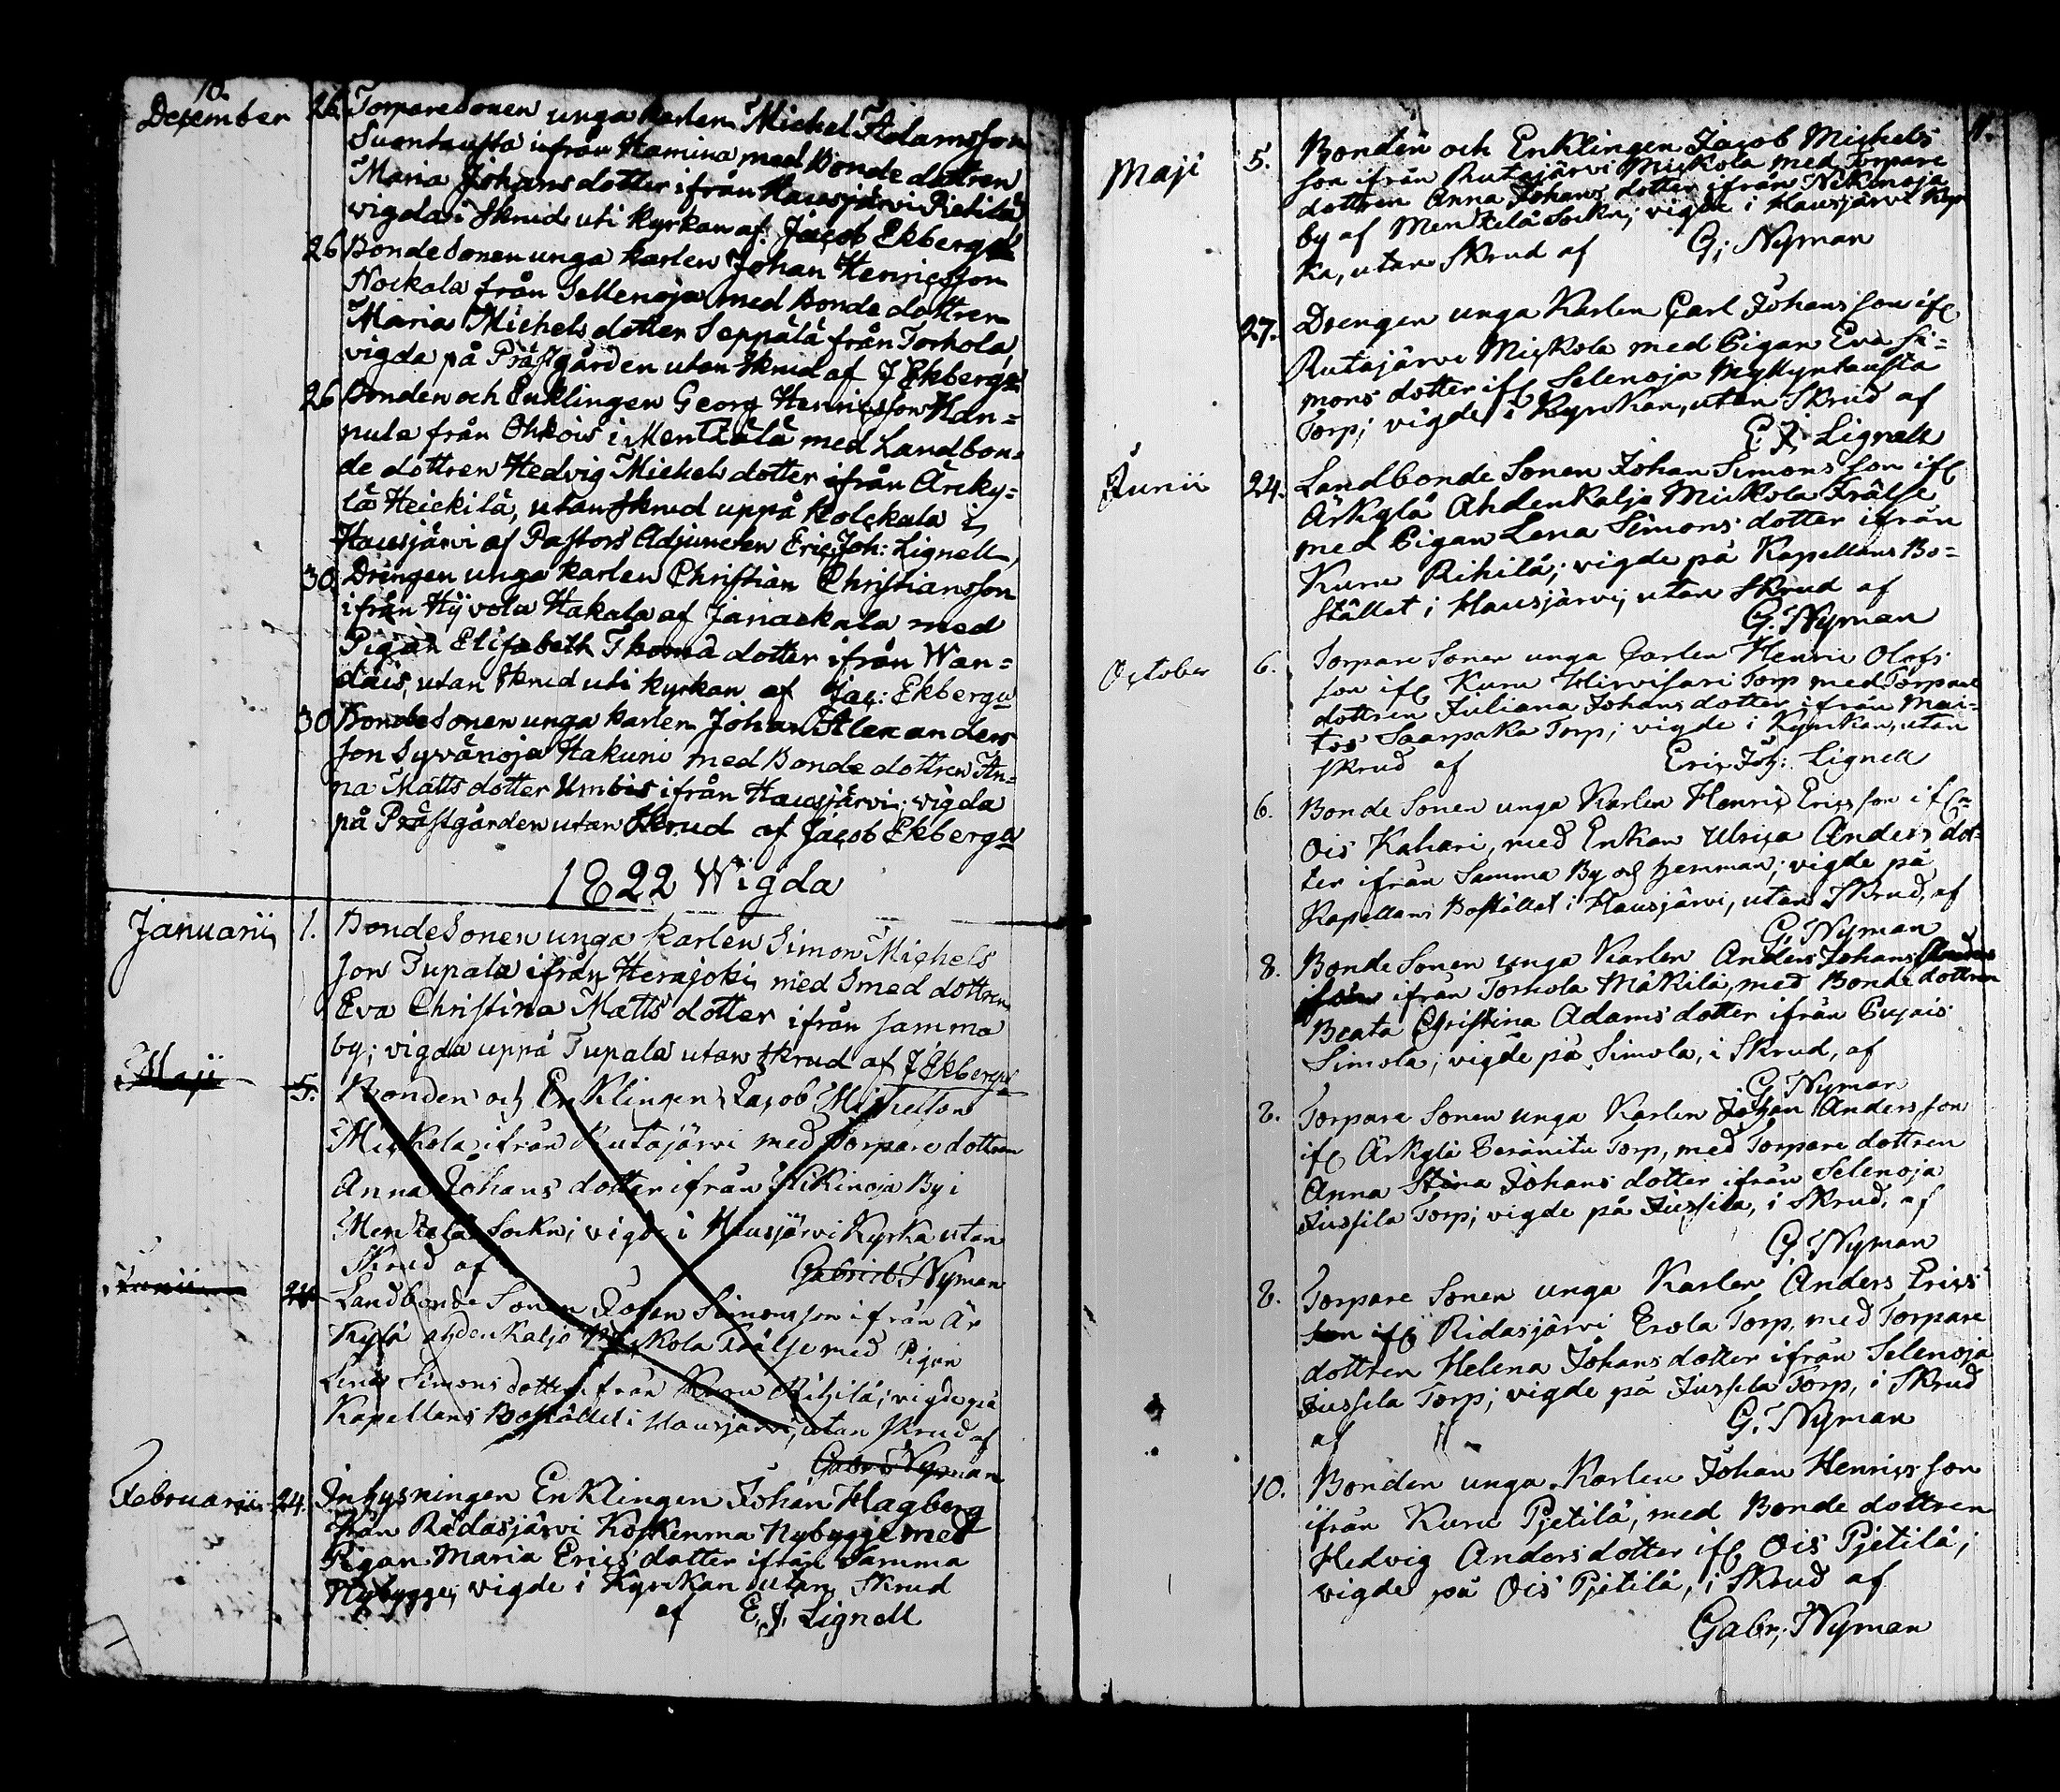 10.
December 26. Torparesonen unga karlen Michel Adamsson
Suontausta ifrån Hamina med Bonde dottren
Maria Johans dotter ifrån Hausjärvi Pietilä
vigda i skrud uti kyrkan af Jacob Ekberg
26 Bonde Sonen unga karlen Johan Henricsson
Nockala från Sellenoja med Bonde dottren
Maria Michels dotter Seppälä från Torhola
vigda på Prästgården utan skrud af J Ekberg
26 Bonden och Enklingen Georg Henricsson Han=
nula från Ohkois i Mentzälä med Landbon=
de dottren Hedvig Michels dotter ifrån Ärcky=
lä Heickilä, utan skrud uppå Kolckala i
Hausjärvi af Pastors Adjuncten Eric Joh: Lignell
30 Drängen unga karlen Christian Christiansson
ifrån Hyvola Hakala af Janackala med
Pigan Elisabeth Thomä dotter ifrån Wan=
däis, utan skrud uti kyrkan af Jac: Ekberg
30 Bonde Sonen unga karlen Johan Alexanders
son Syvänoja Hakuni med Bonde dottren An=
na Matts dotter Umbis ifrån Hausjärvi; vigda
på Prästgården utan skrud af Jacob Ekberg
1822 Wigda
Januarii 1. Bonde Sonen unga karlen Simon Michels
son Tupala ifrån Herajoki, med Smed dottren
Eva Christina Matts dotter ifrån samma
by; vigda uppå Tupala utan skrud af J Ekberg
Maji 5. Bonden och Enklingen Jacob Michelson
Mickola ifrån Rutajärvi med Torpare dottren
Anna Johans dotter ifrån Nikinoja By i
Mentzelä Sockn; vigde i Hausjärvi Kyrka utan
Skrud af Gabriel Nyman
Junii 24 Landbonde Sonen Johan Simonsson ifrån Är
kylä Ahdenkaljo Mickola Frälse med Pigan
Lena Simons dotter ifrån Kuru Rihilä; vigde på
Kapellans Bostället i Hausjärvi, utan Skrud af
Gabr. Nyman
Februarii 24. Inhysningen Enklingen Johan Hagberg
från Ridasjärvi Koskenma Nybygge med
Pigan Maria Erics dotter ifrån Samma
Nybygge; vigde i Kyrckan utan Skrud
af E. J. Lignell
11.
Maji 5. Bonden och Enklingen Jacob Michels
son ifrån Rutajärvi Mickola med Torpare
dottren Anna Johans dotter ifrån Nikinoja
by af Mentzelä Sockn; vigde i Hausjärvi Kyr
ka, utan Skrud af G; Nyman
27. Drengen unga Karlen Carl Johansson ifr
Rutajärvi Mickola med Pigan Eva Si=
mons dotter ifr Selenoja Myllyntausta
Torp; vigde i Kyrkan, utan Skrud af
E. J. Lignell
Junii 24. Landbonde Sonen Johan Simons son ifr
Ärkylä Ahdenkaljo Mickola Frälse
med Pigan Lena Simons dotter ifrån
Kuru Rihilä; vigde på Kapellans Bo=
stället i Hausjärvi, utan Skrud af
G. Nyman
October 6. Torpare Sonen unga Carlen Henric Olofs
son ifr Kuru Hirvisari Torp med Torpare
dottren Juliana Johans dotter ifrån Mai=
tos Saarpaka Torp; vigde i Kyrkan, utan
skrud af Eric Joh: Lignell
6. Bonde Sonen unga Karlen Henric Ericsson ifr=
Ois Kahari, med Enkan Ulrica Anders dot=
ter ifrån Samma By och hemman; vigde på
Kapellans Bostället i Hausjärvi, utan Skrud, af
G. Nyman
8. Bonde Sonen unga Karlen Anders Johans
ifrån Torhola Mäkilä, med Bonde dottren
Beata Christina Adams dotter ifrån Pujais
Simola; vigde på Simola, i Skrud, af
G. Nyman
8. Torpare Sonen unga Karlen Johan Andersson
ifr Ärkylä Peränitu Torp, med Torpare dottren
Anna Stina Johans dotter ifrån Selenoja
Jussila Torp; vigde på Jussila, i Skrud, af
G. Nyman
8. Torpare Sonen unga Karlen Anders Erics
son ifr Ridasjärvi Erola Torp, med Torpare
dottren Helena Johans dotter ifrån Selenoja
Jussila Torp; vigde på Jussila Torp, i Skrud
af G. Nyman
10. Bonden unga Karlen Johan Henricsson
ifrån Kuru Pjetilä, med Bonde dottren
Hedvig Anders dotter ifr Ois Pjetilä;
vigde på Ois Pjetilä, i Skrud af
Gabr; Nyman